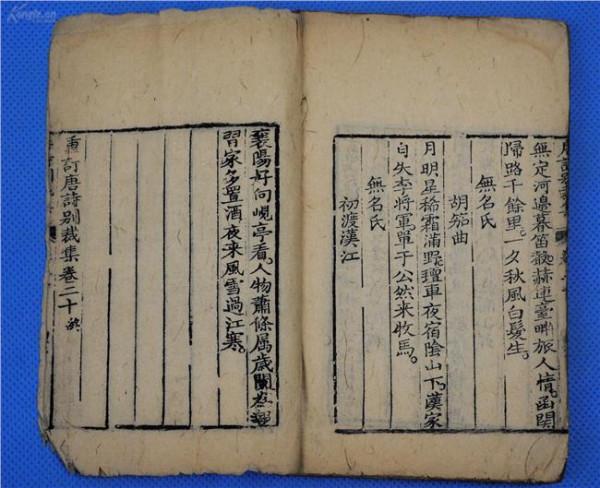 無定河邊暮笛聲赫連臺畔旅人情。函關
歸路千餘里。一夕秋風白髮生。
無名氏
胡笳曲
月明星稀霜滿野。氊車夜宿陰山下。漢家
自失李將軍。單于公然来牧馬。
無名氏
初渡漢江
襄陽好向峴亭看。人物蕭條属歲闌
習家多置酒夜来風雪過江寒。
重訂唐詩別裁集卷二十終